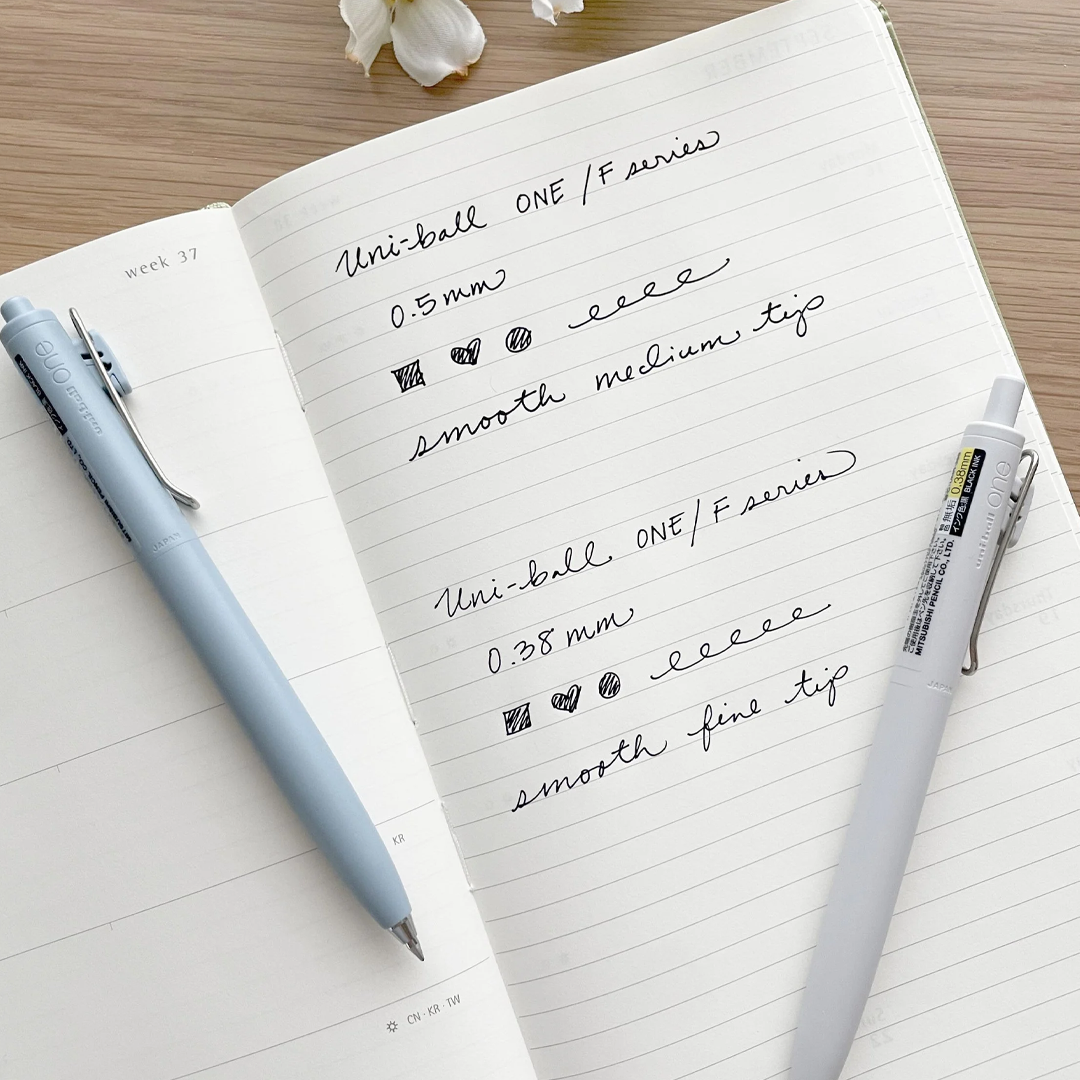 week 37
KR
CN · KR · TW
Uni-ball ONE / F series
0.5 mm
smooth medium tip
Uni-ball ONE / F series
0.38 mm
smooth fine tip
uniball one
JAPAN
0.38mm
インク色:黒 BLACK INK
MITSUBISHI PENCIL CO., LTD.
uniball one
JAPAN